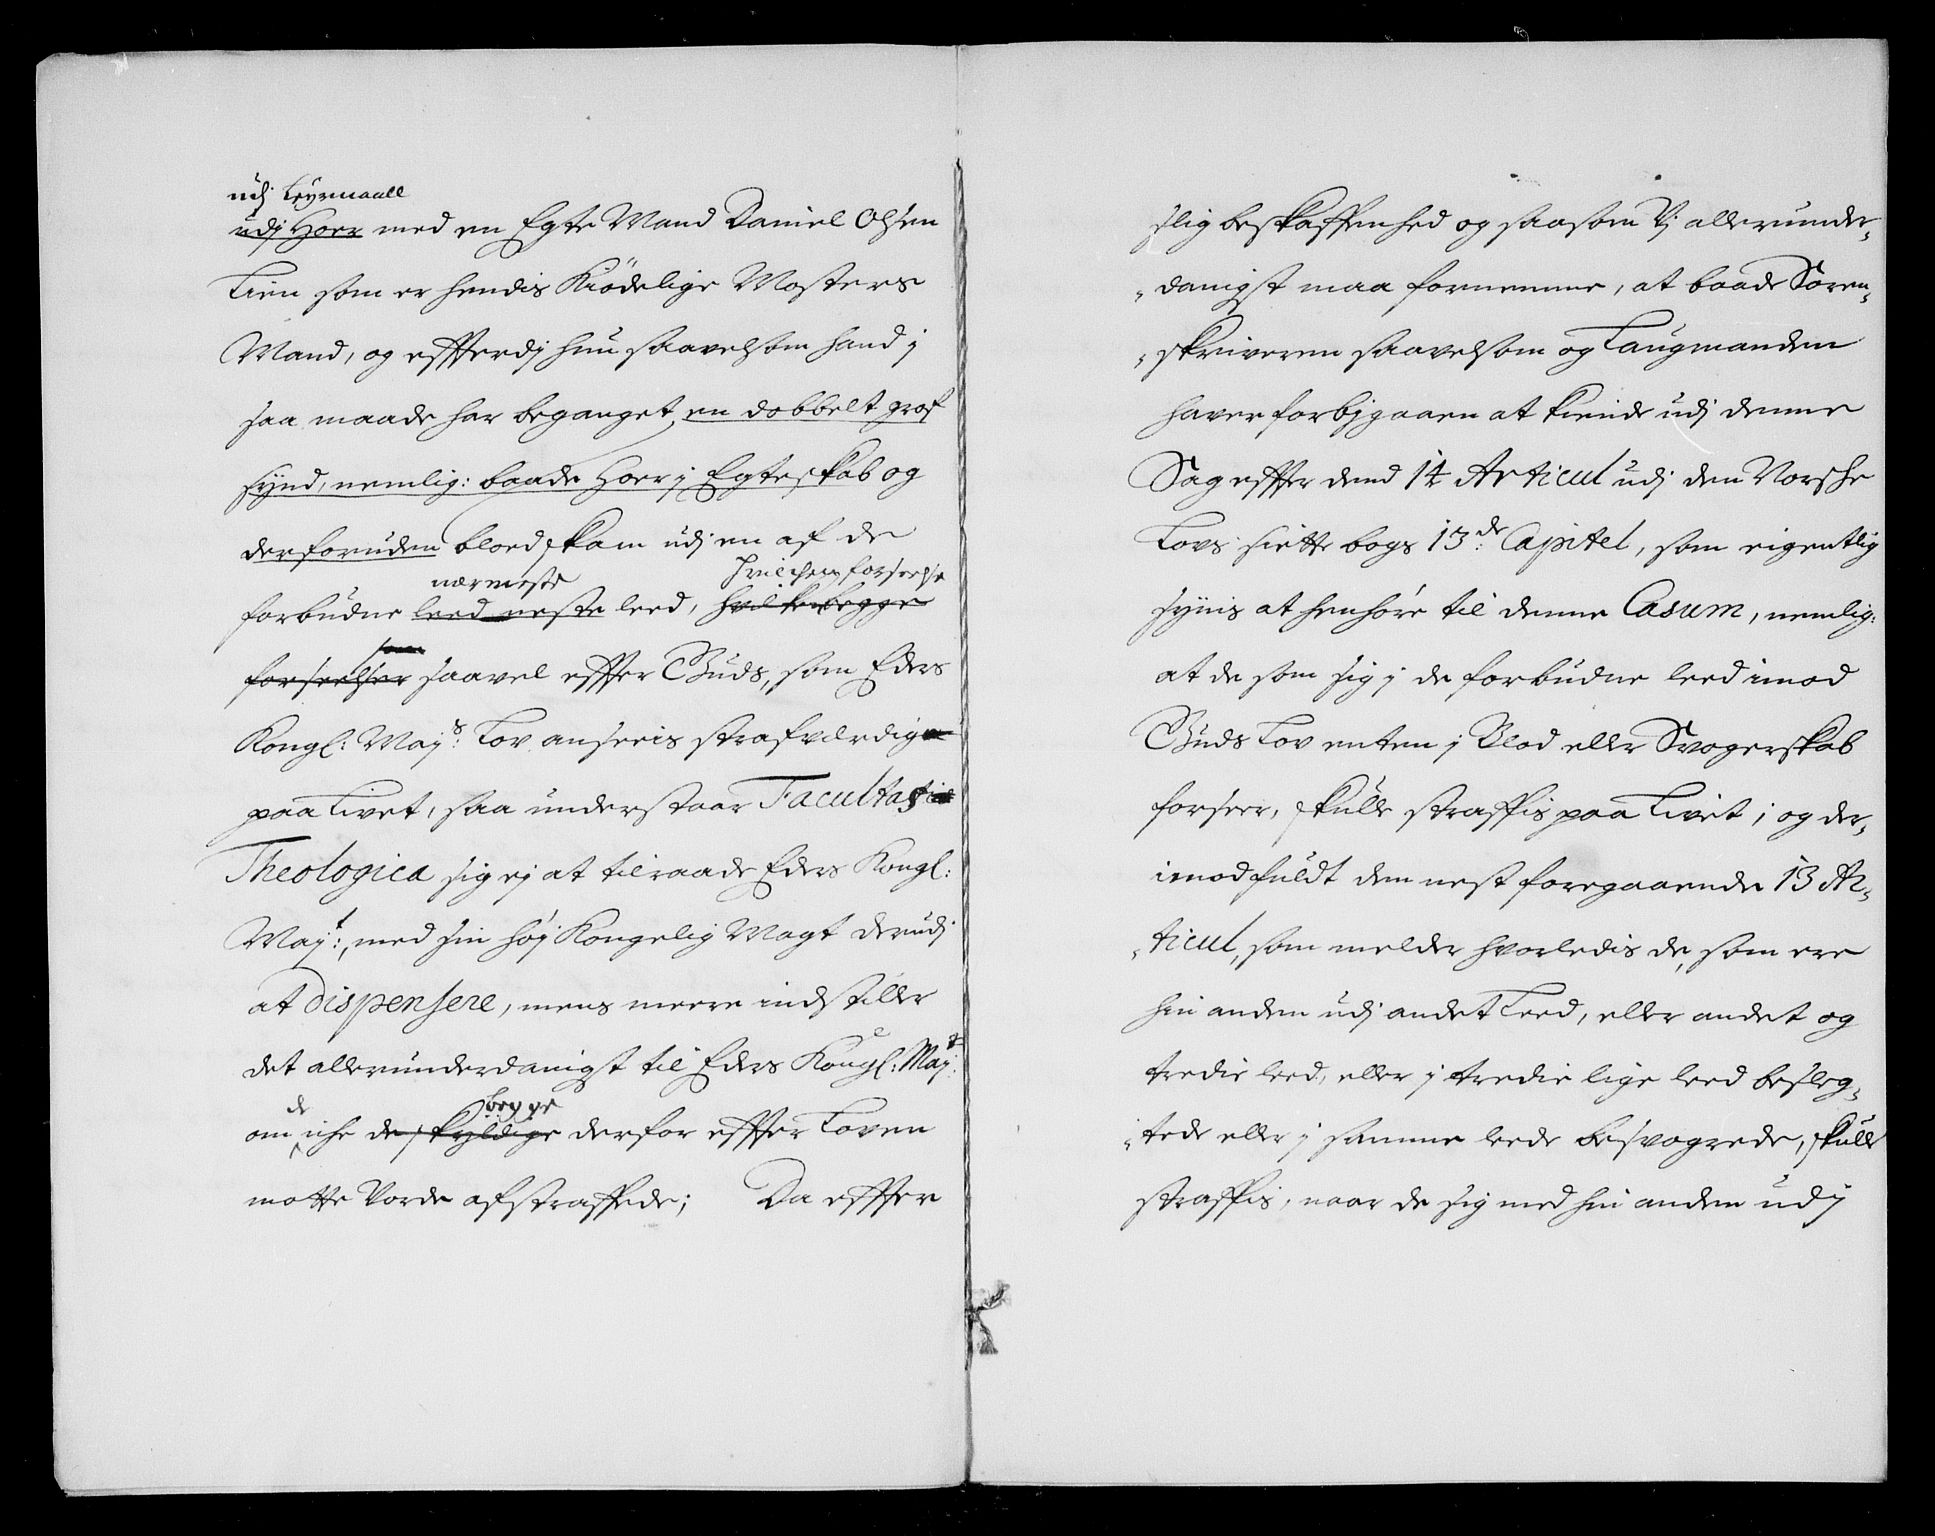 udj Leyermaall
udj Hoer med en Egte Mand Daniel Olsen
Lien som er hendis Kiödelige Mosters
Mand, og effterdj hun saavelsom hand j
saa maade har beganget en dobbelt grof
synd, nemlig: baade Hoer j Egteskab og
derforuden bloedskam udj en af de
nærmeste hvilchen forseelse
forbudne leed neste leed, hvilke begge
som
forseelser saavel effter Guds, som Eders
Kongl: Mays: Lov anseeis strafværdige
paa Livet, saa understaar Facultas
Theologica sig ej at tilraade Eders Kongl:
Mayt:, med sin høj Kongelig Magt derudj
at dispensere, mens meere indstiller
det allerunderdanigst til Eders Kongl: Mayt:
de begge
om iche de skyldige derfor effter Loven
motte Vorde afstraffede; Da effter
slig beskaffenhed og saasom Vj allerunder-
danigst maa fornemme, at baade Soren-
skriveren saavelsom og Laugmanden
haver forbjgaaen at kiende udj denne
Sag effter dend 14 Articul udj den Norshe
Lovs siette bogs 13de: Capitel, som eigentlig
synis at henhöre til denne Casum, nemlig:
at de som sig j de forbudne leed imod
Guds Lov enten j Blod eller Svogerskab
forseer, skulle straffis paa Livet; og der-
imod fuldt den nest foregaaende 13 Ar-
ticul, som melder hvorledis de, som ere
hin anden udj andet Leed, eller andet og
tredie leed, eller j tredie lige leed besleg-
tede eller j samme leede besvogrede, skulle
straffis, naar de sig med hin anden udj